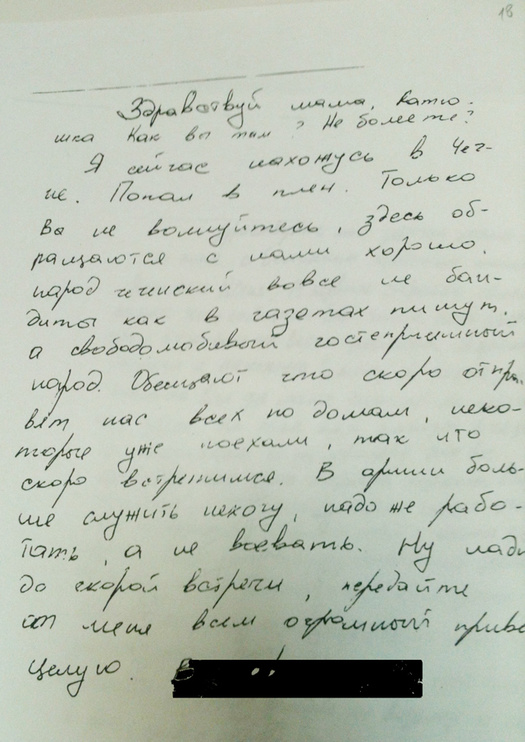 18
Здравствуй мама, батю-
шка Как вы там? Не болеете?
Я сейчас нахожусь в Чеч-
не. Попал в плен. Только
Вы не волнуйтесь, здесь об-
ращаются с нами хорошо.
народ чеченский вовсе не бан-
диты как в газетах пишут,
а свободолюбивый гостеприимный
народ. Обещают что скоро отпра
вят нас всех по домам, неко-
торые уже поехали, так что
скоро встретимся. В армии боль-
ше служить нехочу, надо же рабо-
тать, а не воевать. Ну лад
до скорой встречи, передайте
от меня всем огромный приве
целую.